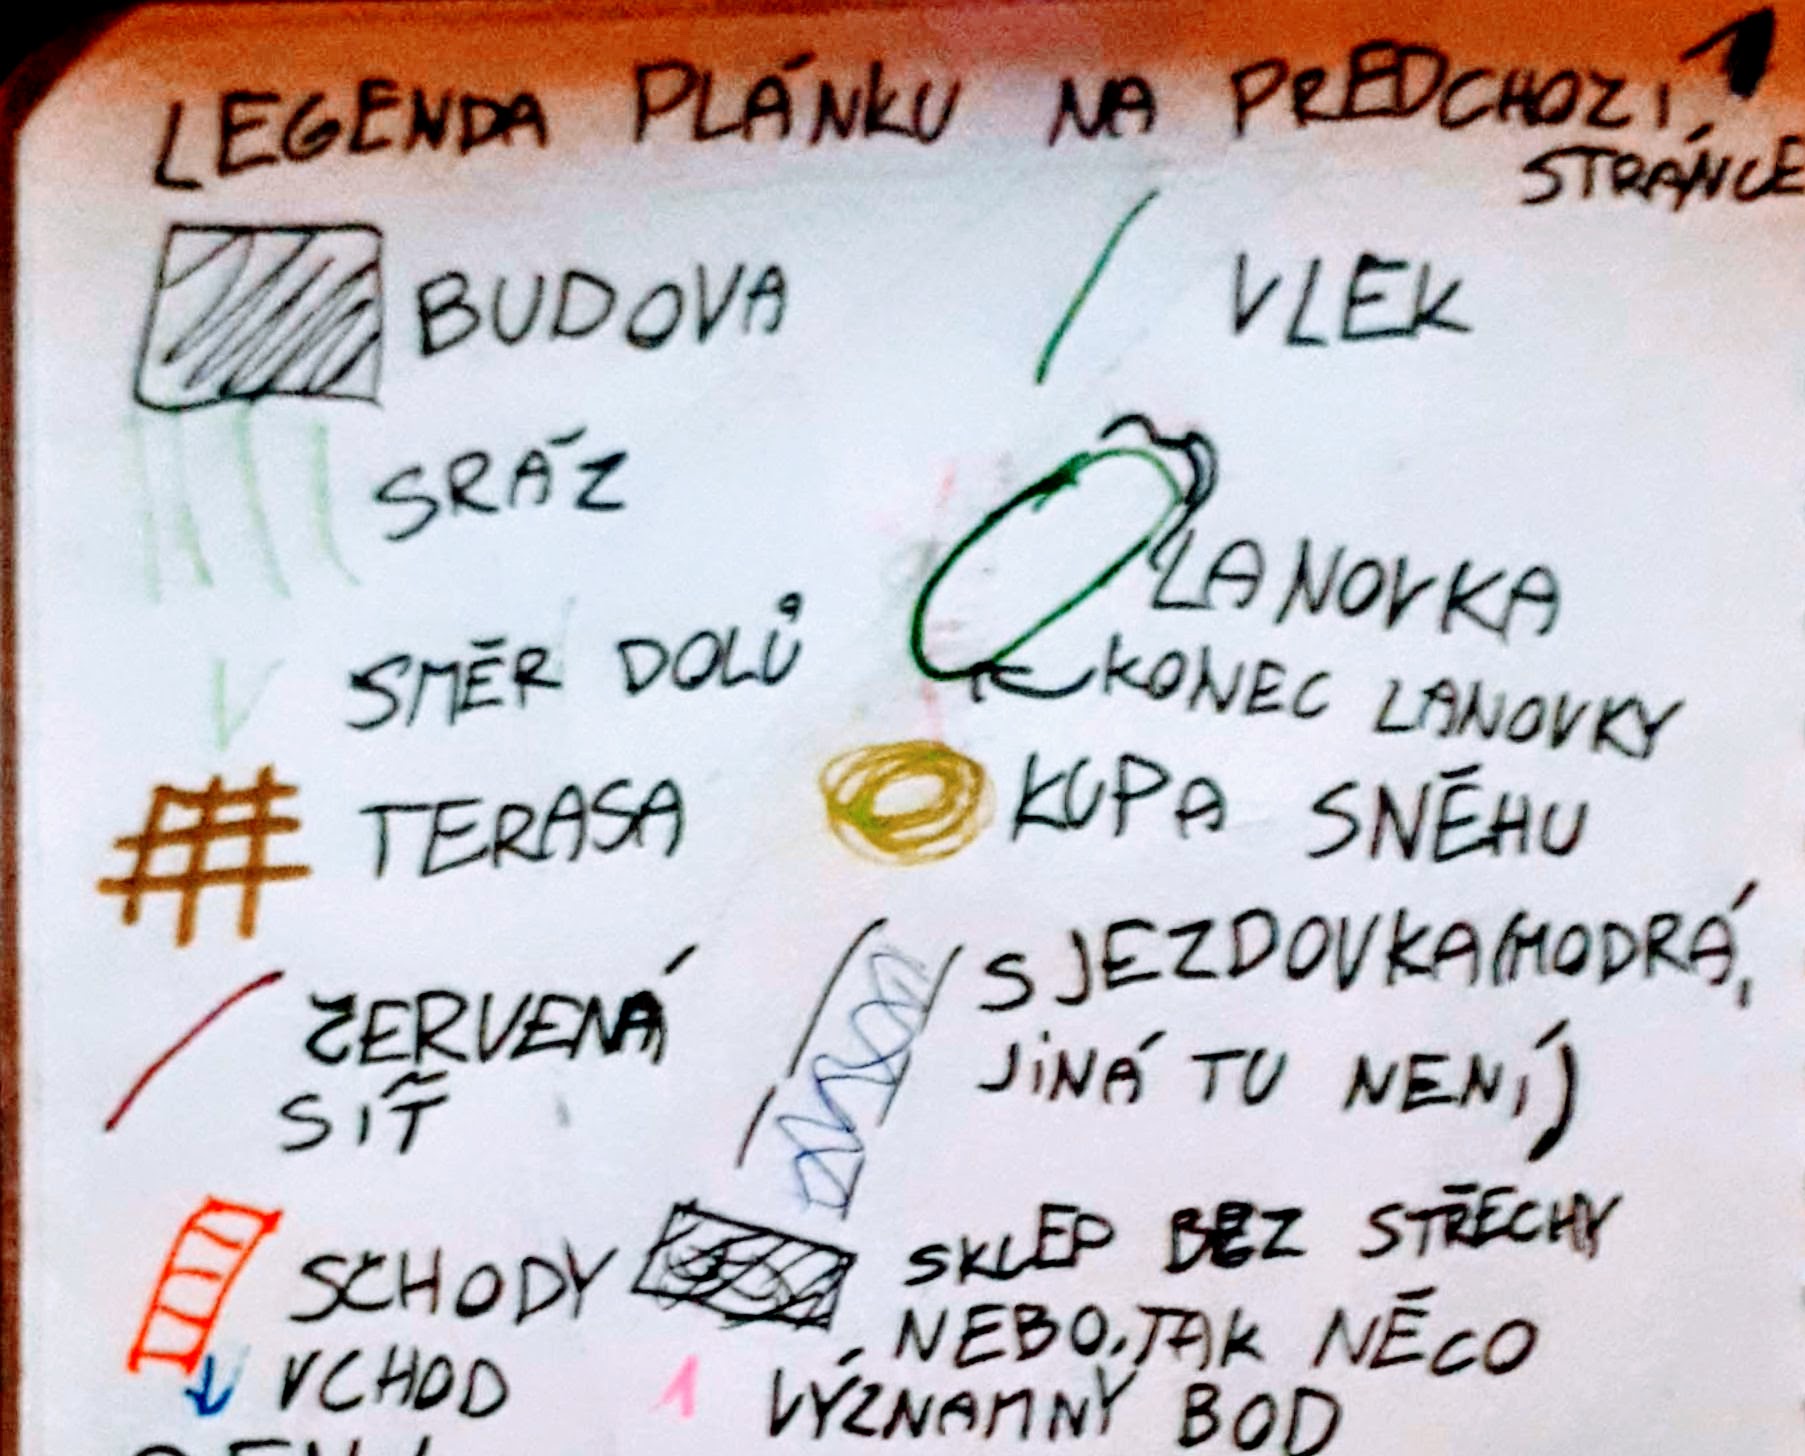 LEGENDA PLÁNKU NA PŘEDCHOZÍ 1
STRÁNCE
BUDOVA
VLEK
SRÁZ
LANOVKA
SMĚR DOLŮ
KONEC LANOVKY
TERASA
KUPA SNĚHU
ČERVENÁ
SÍŤ
SJEZDOVKA (MODRÁ,
JINÁ TU NENÍ)
SCHODY
SKLEP BEZ STŘECHY
NEBO TAK NĚCO
VCHOD
1 VÝZNAMNÝ BOD